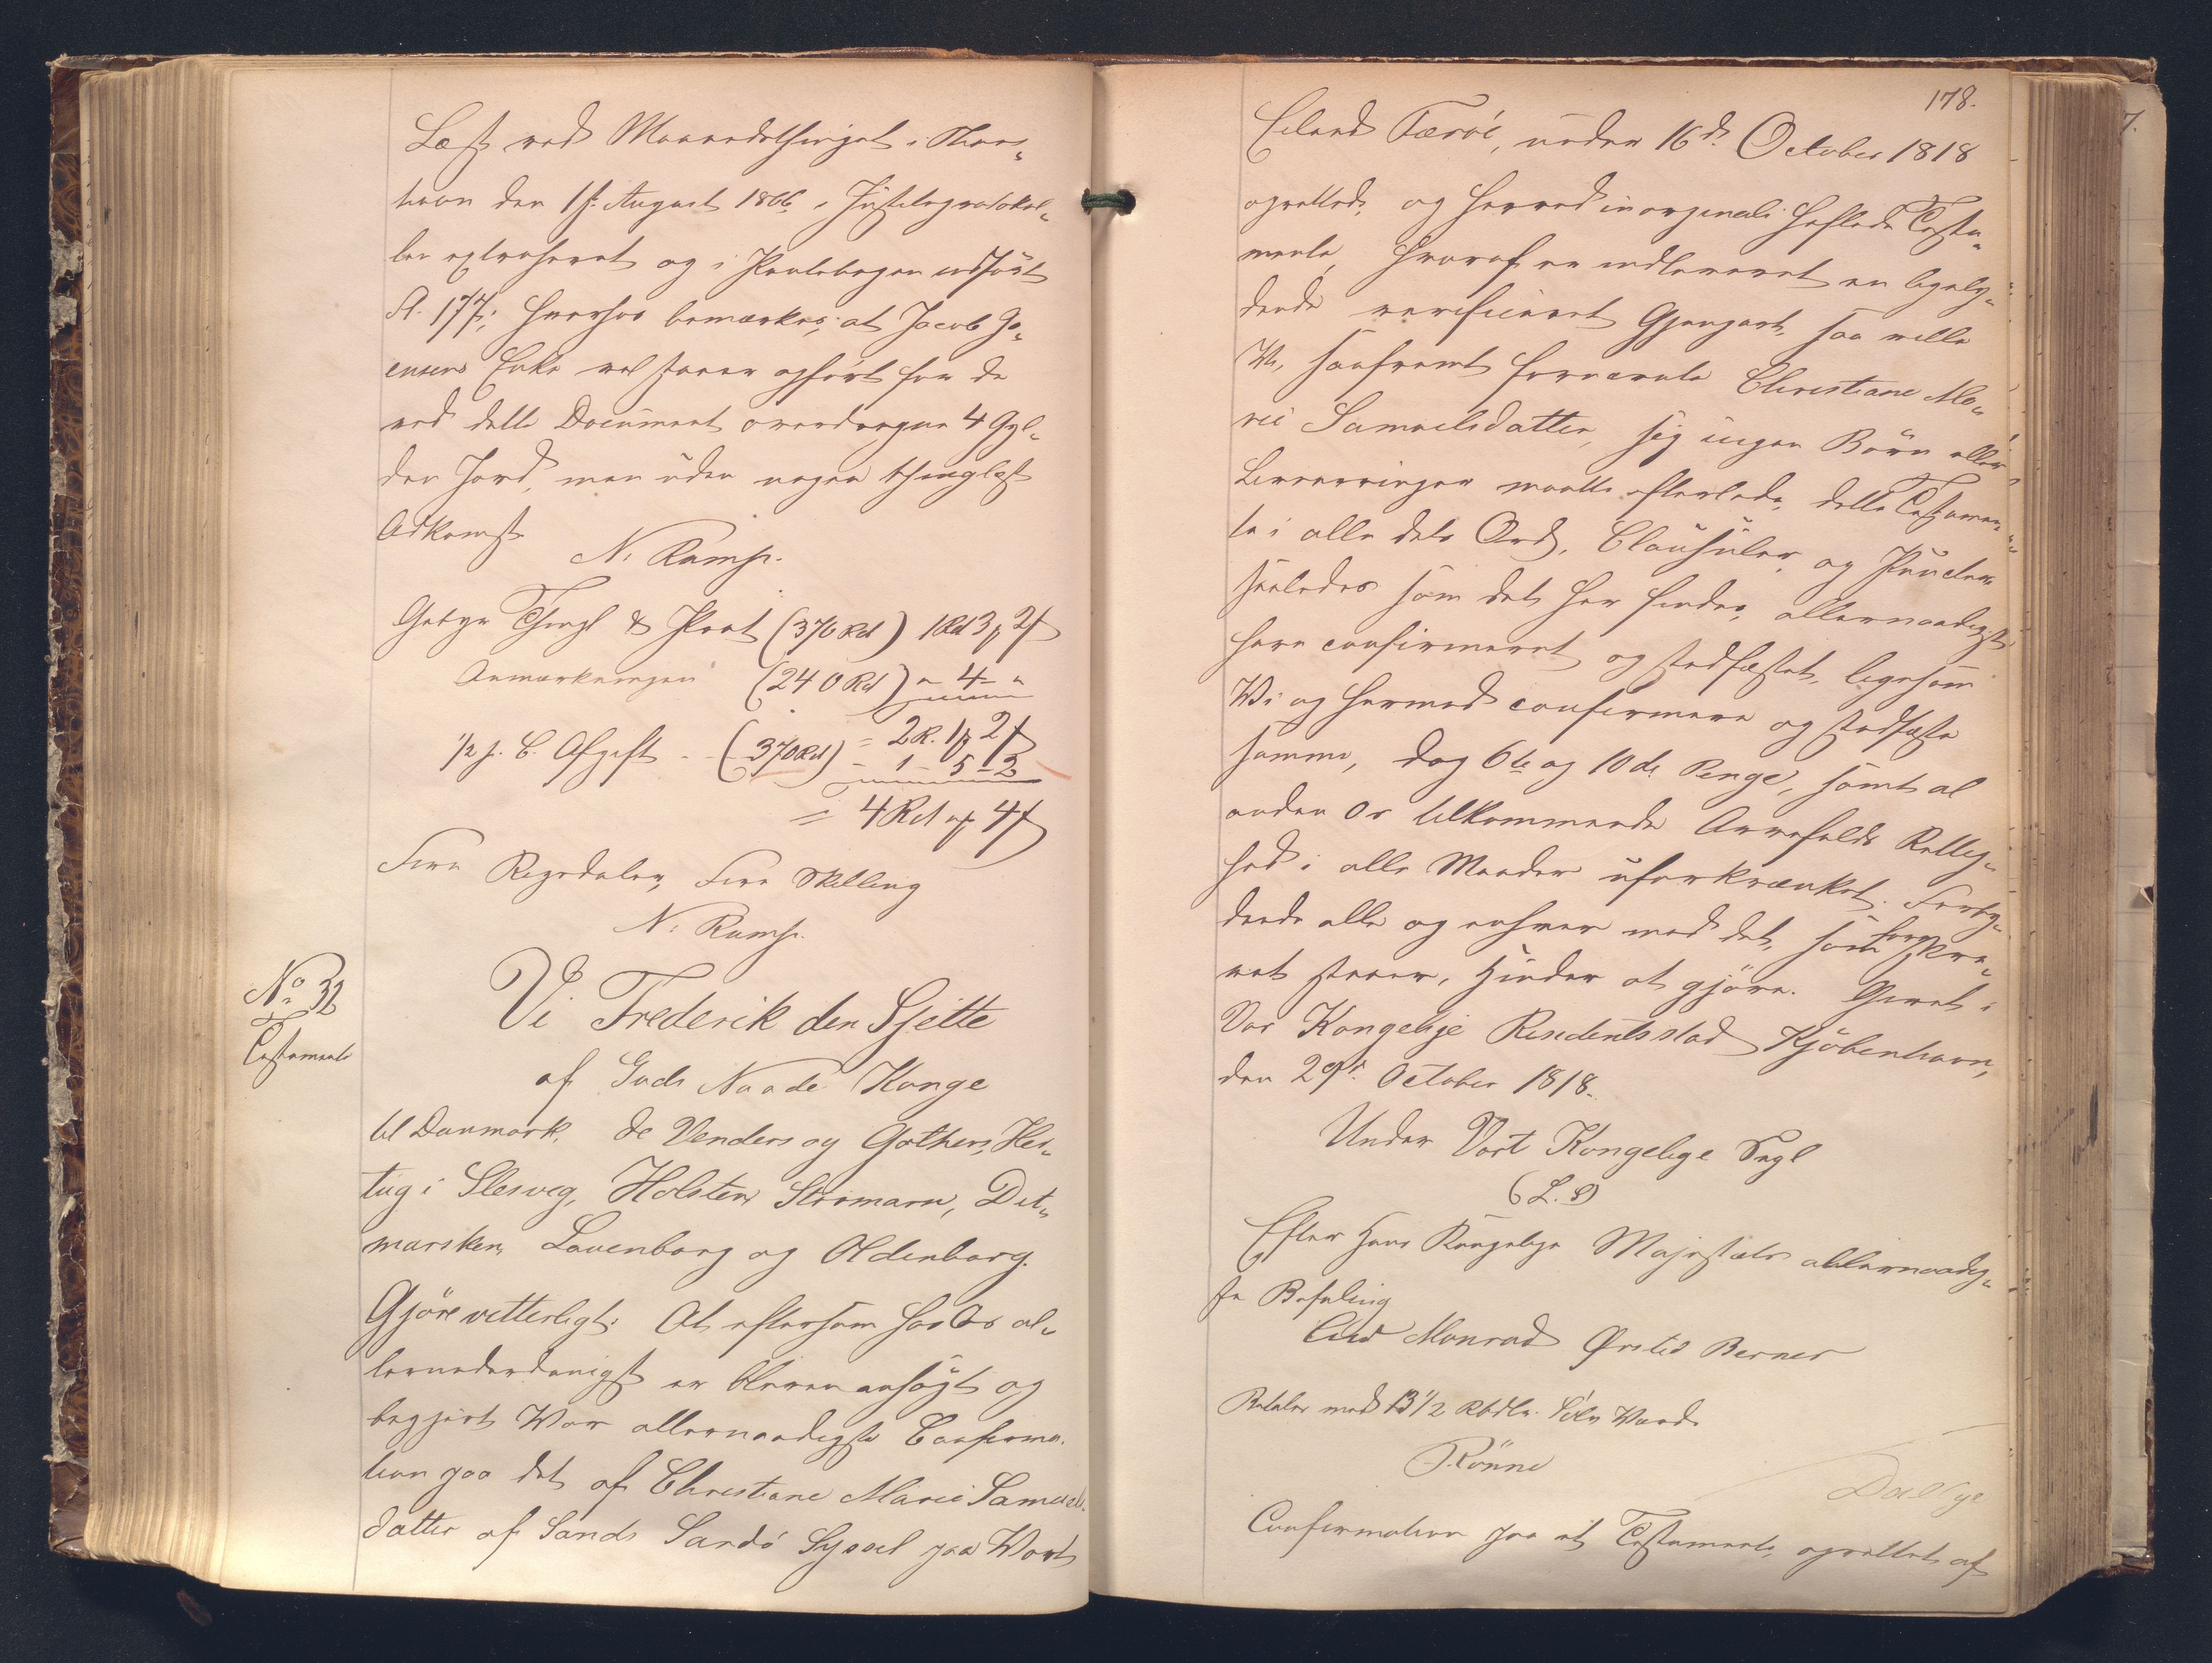 Læst ved Maanedsthinget i Thors„
havn den 1ste August 1866, i Justitsprotokol„
len extraheret og i Pantebogen indført
A. 177; hvorhos bemærkes, at Jacob Jo„
ensens Enke vel staaer opført for de
ved dette Document overdragne 4 Gyl„
den Jord, men uden nogen thinglæst
Adkomst
N. Rump.
Gebyr Thingl & Prot (370 Rd) 1 Rd 3 ℳ 2 ſ
Anmærkningen (240 Rd) „ 4 „
= 2 R. 1 ℳ 2 ſ
1/2 p. C. Afgift - - (370 Rd) - 1 - 5 - 2
= 4 Rd „ ℳ 4 ſ
Fire Rigsdaler, Fire Skilling
N. Rump.
No 32
Testamente
Vi Frederik den Sjette
af Guds Naade Konge
til Danmark, de Venders og Gothers, Her„
tug i Slesvig, Holsten, Stormarn, Dit„
marsken, Lauenborg og Oldenborg.
Gjøre vitterligt: At eftersom hos Os al„
lerunderdanigst er bleven ansøgt og
begjert Vor allernaadigste Confirma„
tion paa det af Christiane Marie Samuels„
datter af Sands Sandø Syssel paa Vort
178.
Eiland Færøe, under 16de October 1818
oprettede, og herved in originali heftede Testa„
mente, hvoraf er indleveret en ligely„
dende verificeret Gjenpart, saa ville
Vi, saafremt fornævnte Christiane Ma„
rie Samuelsdatter, sig ingen Børn eller
Livsarvinger maatte efterlade, dette Testamen„
te i alle dets Ord, Clausuler, og Puncter,
saaledes som det her findes, allernaadigst
have confirmeret og stadfæstet, ligesom
Vi og hermed confirmere og stadfæste
samme, dog 6te og 10de Penge, samt al
anden Os tilkommende Arvefalds Rettig„
hed i alle Maader uforkrænket. Forby„
dende alle og enhver mod det, som forskre„
vet staaer, Hinder at gjøre. Givet i
Vor Kongelige Residentsstad Kjøbenhavn,
den 29de October 1818.
Under Vort Kongelige Segl
(L. S)
Efter Hans Kongelige Majestæts allernaadig„
ste Befaling
Monrad Ørsted Berner
Betaler med 13 1/2 Rbdlr. Sølv Værdi
Rönne
Confirmation paa et Testamente, oprettet af